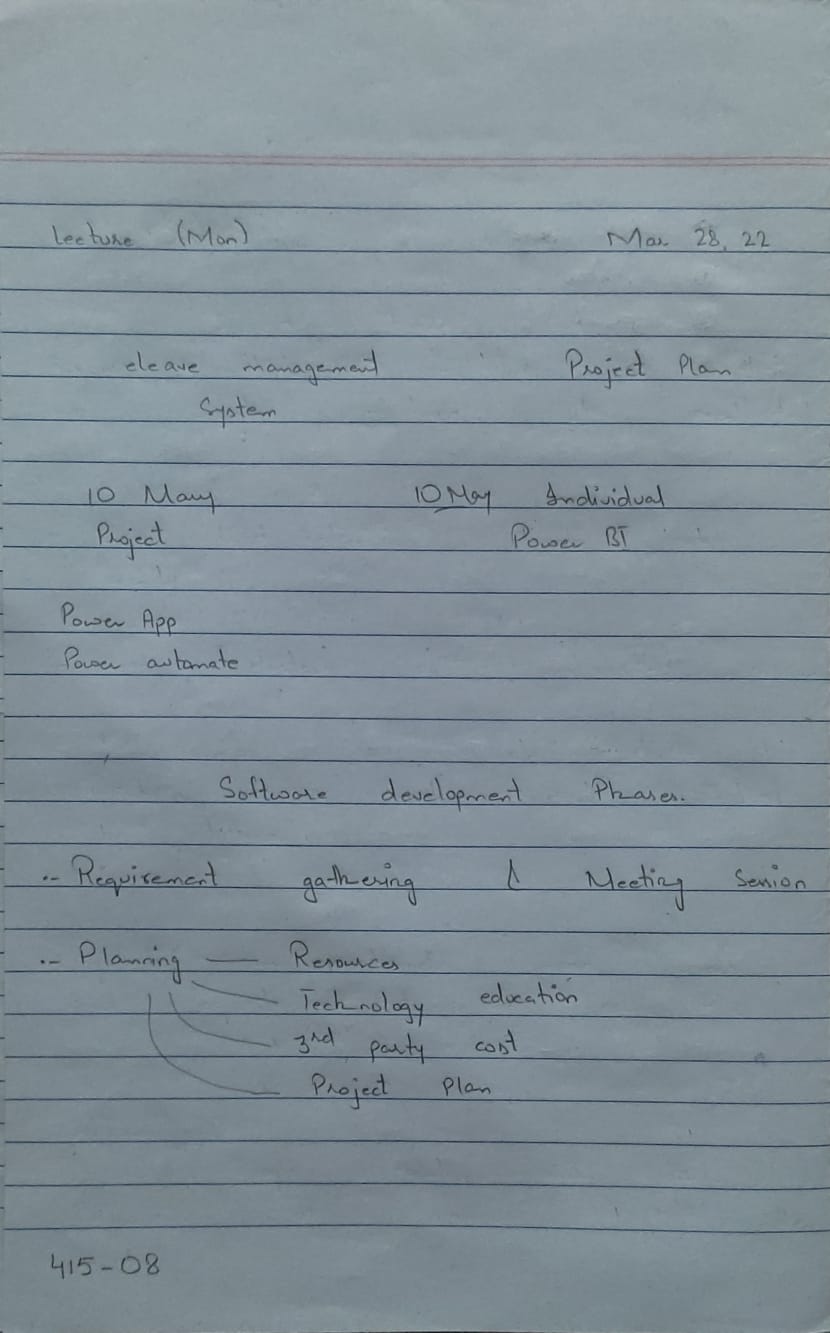 Lecture (Mon) Mar 28, 22
eleave management Project Plan
System
10 Many 10 May Individual
Project Power BI
Power App
Power automate
Software development Phases.
.- Requirement gathering & Meeting Session
.- Planning — Resources
Technology education
3rd party cost
Project Plan
415-08